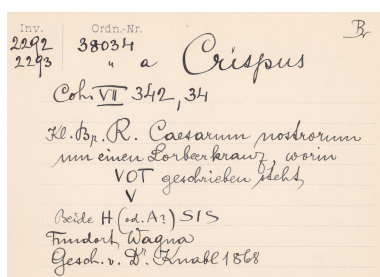 Inv. Ordn.-Nr. Br
2292 38034
2293 " a Crispus
Coh. VII 342,34
Kl. Br. R. Caesarum nostrorum
um einen Lorbeerkranz, worin
VOT geschrieben steht,
V
Beide H (od. A?) SIS
Fundort Wagna
Gesch. v. Dr. Knabl 1868